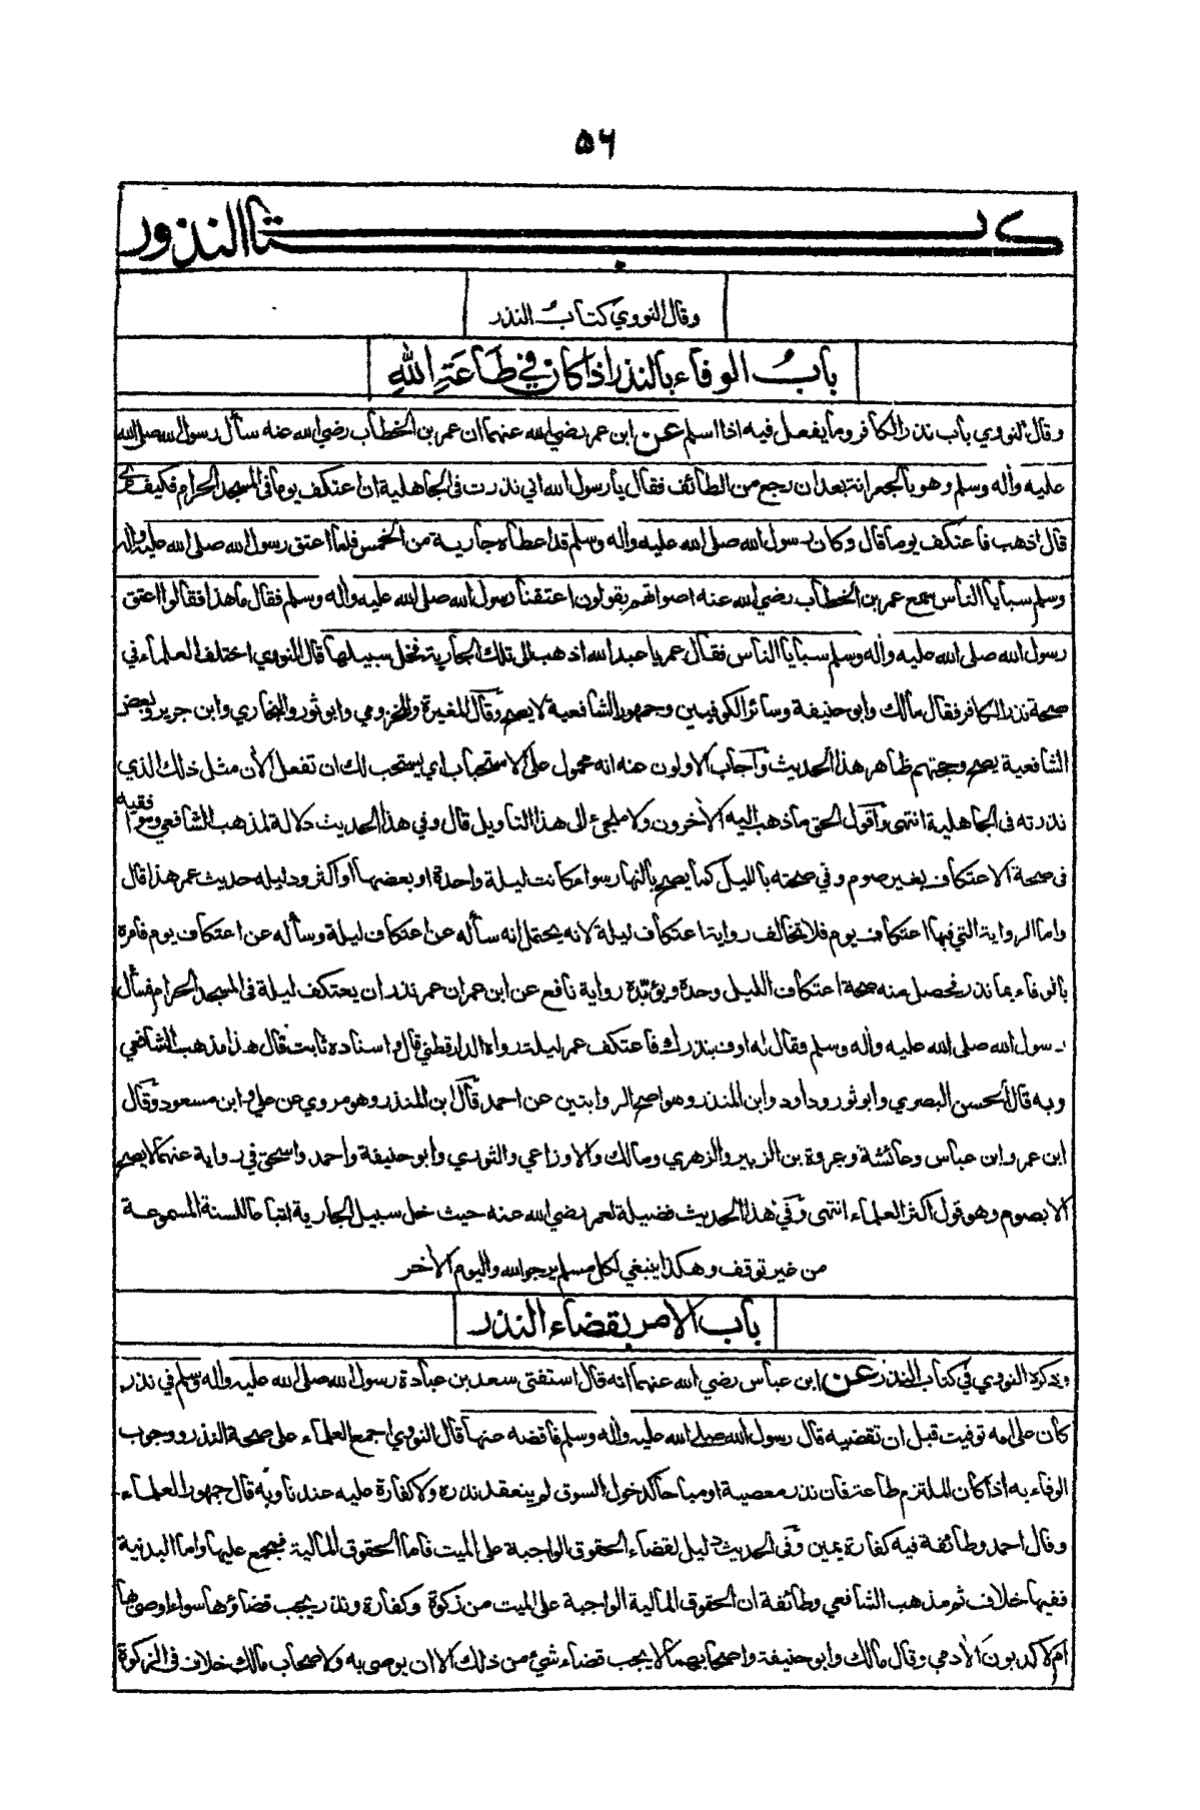 ٥٦
كتاب النذور
وقال النووي كتاب النذر
باب الوفاء بالنذر اذا كان في طاعة الله
وقال النووي باب نذر الكافر وما يفعل فيه اذا اسلم عن ابن عمر رضي الله عنهما ان عمر بن الخطاب رضي الله عنه سأل رسول الله صلى الله
عليه وأله وسلم وهو بالجعرانة بعد ان رجع من الطائف فقال يا رسول الله اني نذرت في الجاهلية ان اعتكف يوما في المسجد الحرام فكيف ترى
قال اذهب فاعتكف يوما قال وكان رسول الله صلى الله عليه وأله وسلم قد اعطاه جارية من الخمس فلما اعتق رسول الله صلى الله عليه وأله
وسلم سبايا الناس سمع عمر بن الخطاب رضي الله عنه اصواتهم يقولون اعتقنا رسول الله صلى الله عليه وأله وسلم فقال ما هذا فقالوا اعتق
رسول الله صلى الله عليه وأله وسلم سبايا الناس فقال عمر يا عبد الله اذهب الى تلك الجارية فخل سبيلها قال النووي اختلف العلماء في
صحة نذر الكافر فقال مالك وابو حنيفة وسائر الكوفيين وجمهور الشافعية لا يصح وقال المغيرة والمخزومي وابو ثور والبخاري وابن جرير وبعض
الشافعية يصح وحجتهم ظاهر هذا الحديث وأجاب الاولون عنه انه محمول على الاستحباب اي يستحب لك ان تفعل الأن مثل ذلك الذي
نذرته في الجاهلية انتهى وأقول الحق ما ذهب اليه الأخرون ولا ملجئ الى هذا التاويل قال وفي هذا الحديث دلالة لمذهب الشافعي وموافقيه
في صحة الاعتكاف بغير صوم وفي صحته بالليل كما يصح بالنهار سواء كانت ليلة واحدة او بعضها او اكثر ودليله حديث عمر هذا قال
واما الرواية التي فيها اعتكاف يوم فلا تخالف رواية اعتكاف ليلة لانه يحتمل انه سأله عن اعتكاف ليلة وسأله عن اعتكاف يوم فامره
بالوفاء بما نذر فحصل منه صحة اعتكاف الليل وحده ويؤيّده رواية نافع عن ابن عمر ان عمر نذر ان يعتكف ليلة في المسجد الحرام فسأل
رسول الله صلى الله عليه وأله وسلم فقال له اوف بنذرك فاعتكف عمر ليلة رواه الدارقطني قال واسناده ثابت قال هذا مذهب الشافعي
وبه قال الحسن البصري وابو ثور وداود وابن المنذر وهو اصح الروايتين عن احمد قال ابن المنذر وهو مروي عن علي وابن مسعود وقال
ابن عمر وابن عباس وعائشة وعروة بن الزبير والزهري ومالك والاوزاعي والثوري وابو حنيفة واحمد واسحق في رواية عنهما لا يصح
الا بصوم وهو قول اكثر العلماء انتهى وفي هذا الحديث فضيلة لعمر رضي الله عنه حيث خل سبيل الجارية اتباعا للسنة المسموعة
من غير توقف وهكذا ينبغي لكل مسلم يرجو الله واليوم الأخر
باب الامر بقضاء النذر
وذكره النووي في كتاب النذر عن ابن عباس رضي الله عنهما انه قال استفتى سعد بن عبادة رسول الله صلى الله عليه وأله وسلم في نذر
كان على امه توفيت قبل ان تقضيه قال رسول الله صلى الله عليه وأله وسلم فاقضه عنها قال النووي اجمع العلماء على صحة النذر ووجوب
الوفاء به اذا كان الملتزم طاعة فان نذر معصية او مباحا كدخول السوق لم ينعقد نذره ولا كفارة عليه عندنا وبه قال جمهور العلماء
وقال احمد وطائفة فيه كفارة يمين وفي الحديث دليل لقضاء الحقوق الواجبة على الميت فاما الحقوق المالية فمجمع عليها واما البدنية
ففيها خلاف ثم مذهب الشافعي وطائفة ان الحقوق المالية الواجبة على الميت من زكوة وكفارة ونذر يجب قضاؤها سواء اوصى بها
ام لا كديون الأدمي وقال مالك وابو حنيفة واصحابهما لا يجب قضاء شيء من ذلك الا ان يوصى به ولاصحاب مالك خلاف في الزكوة